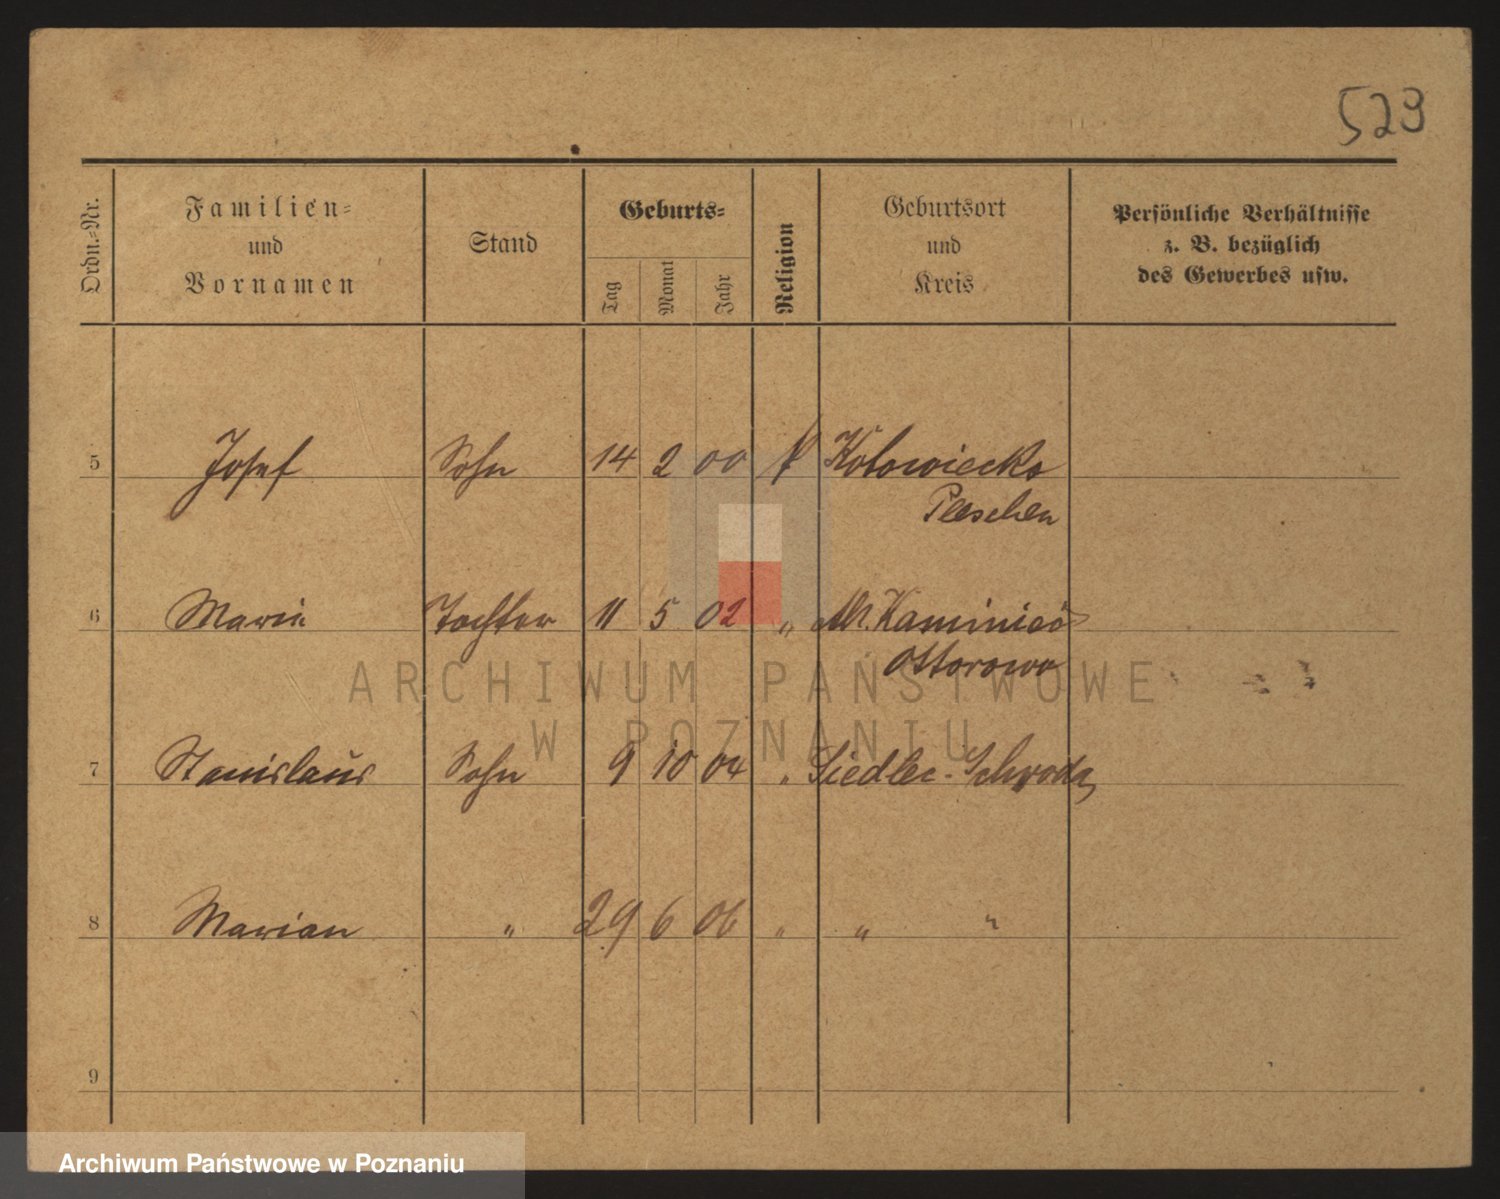 523
Ordn.-Nr.
Familien-
und
Vornamen
Stand
Geburts-
Tag
Monat
Jahr
Religion
Geburtsort
und
Kreis
Persönliche Verhältnisse
z. B. bezüglich
des Gewerbes usw.
5 Josef Sohn 14 2 00 k Kotowiecko
Pleschen
6 Marie Tochter 11 5 02 " Kaminiec
Ottorowo
ARCHIWUM PAŃSTWOWE
W POZNANIU
7 Stanislaus Sohn 9 10 04 " Siedlec - Schroda
8 Marian " 29 6 06 " " "
9
Archiwum Państwowe w Poznaniu